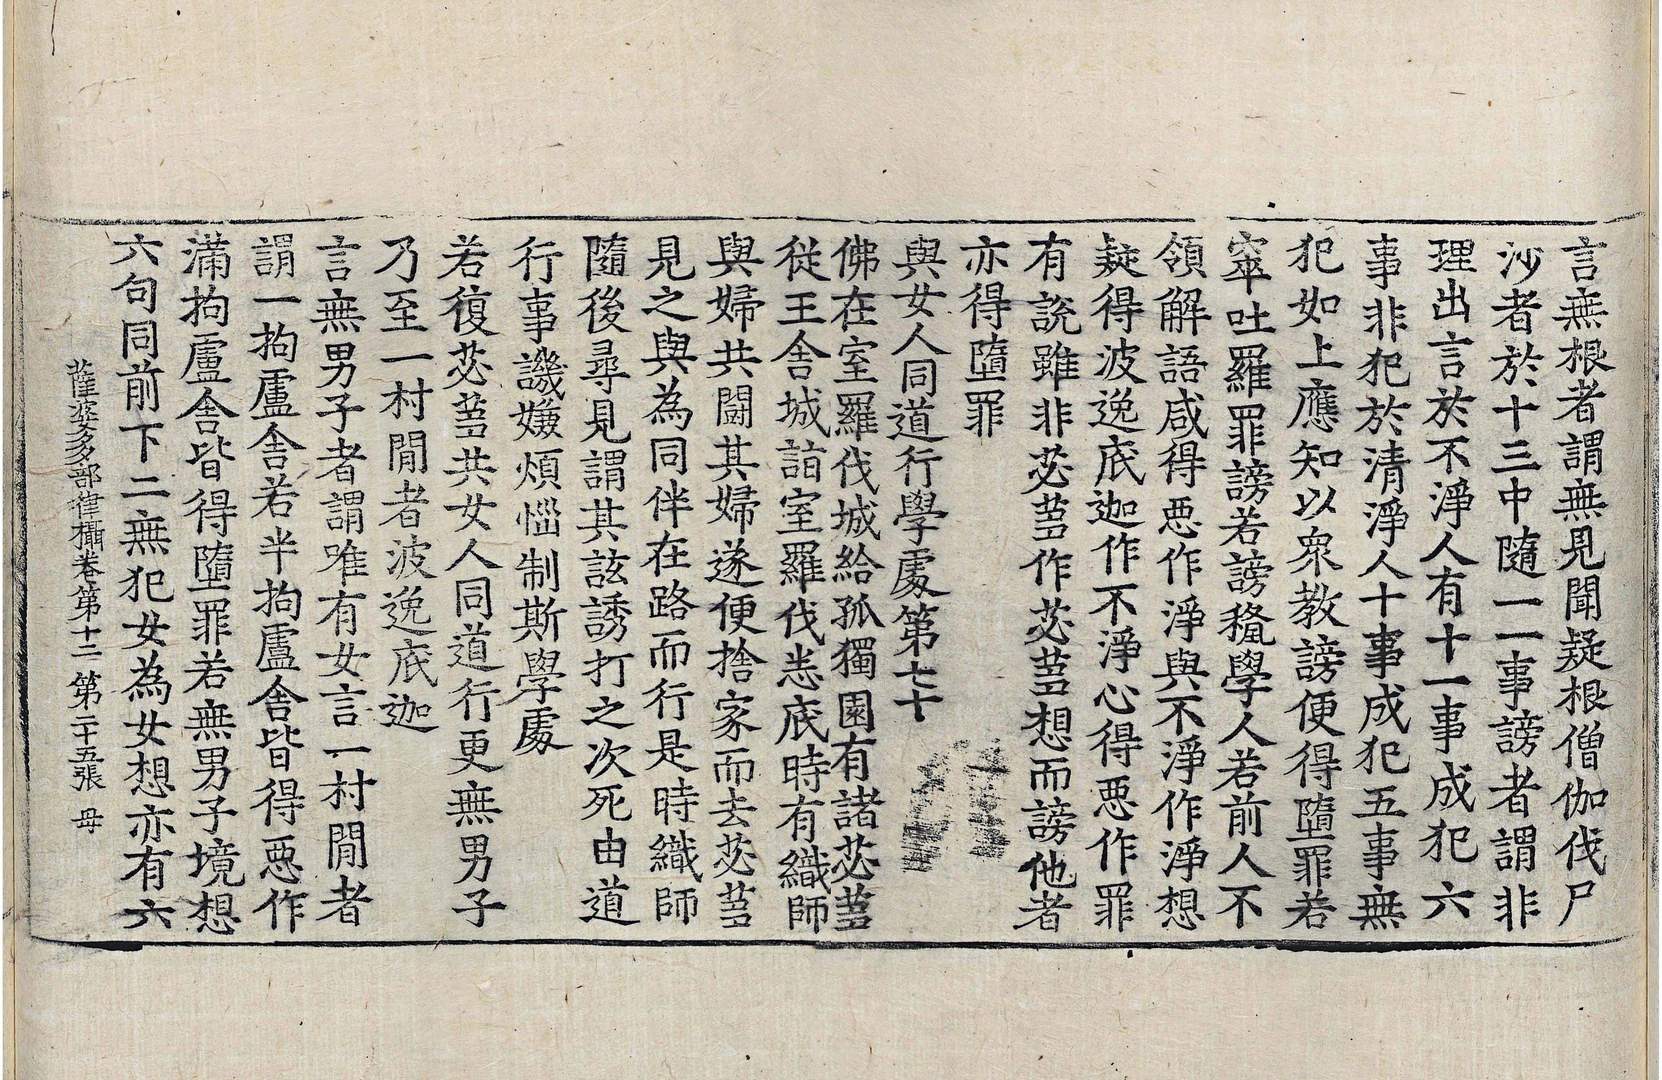 言無根者謂無見聞疑根僧伽伐尸
沙者於十三中隨一一事謗者謂非
理出言於不淨人有十一事成犯六
事非犯於清淨人十事成犯五事無
犯如上應知以衆教謗便得墮罪若
窣吐羅罪謗若謗㲉學人若前人不
領解語咸得惡作淨與不淨作淨想
疑得波逸底迦作不淨心得惡作罪
有說雖非苾芻作苾芻想而謗他者
亦得墮罪
與女人同道行學處第七十
佛在室羅伐城給孤獨園有諸苾芻
從王舍城詣室羅伐恙底時有織師
與婦共鬪其婦遂便捨家而去苾芻
見之與為同伴在路而行是時織師
隨後尋見謂其該誘打之次死由道
行事譏嫌煩惱制斯學處
若復苾芻共女人同道行更無男子
乃至一村閒者波逸底迦
言無男子者謂唯有女言一村閒者
謂一拘盧舍若半拘盧舍皆得惡作
滿拘盧舍皆得墮罪若無男子境想
六句同前下二無犯女為女想亦有六
薩婆多部律攝卷第十二 第二十五張 毋